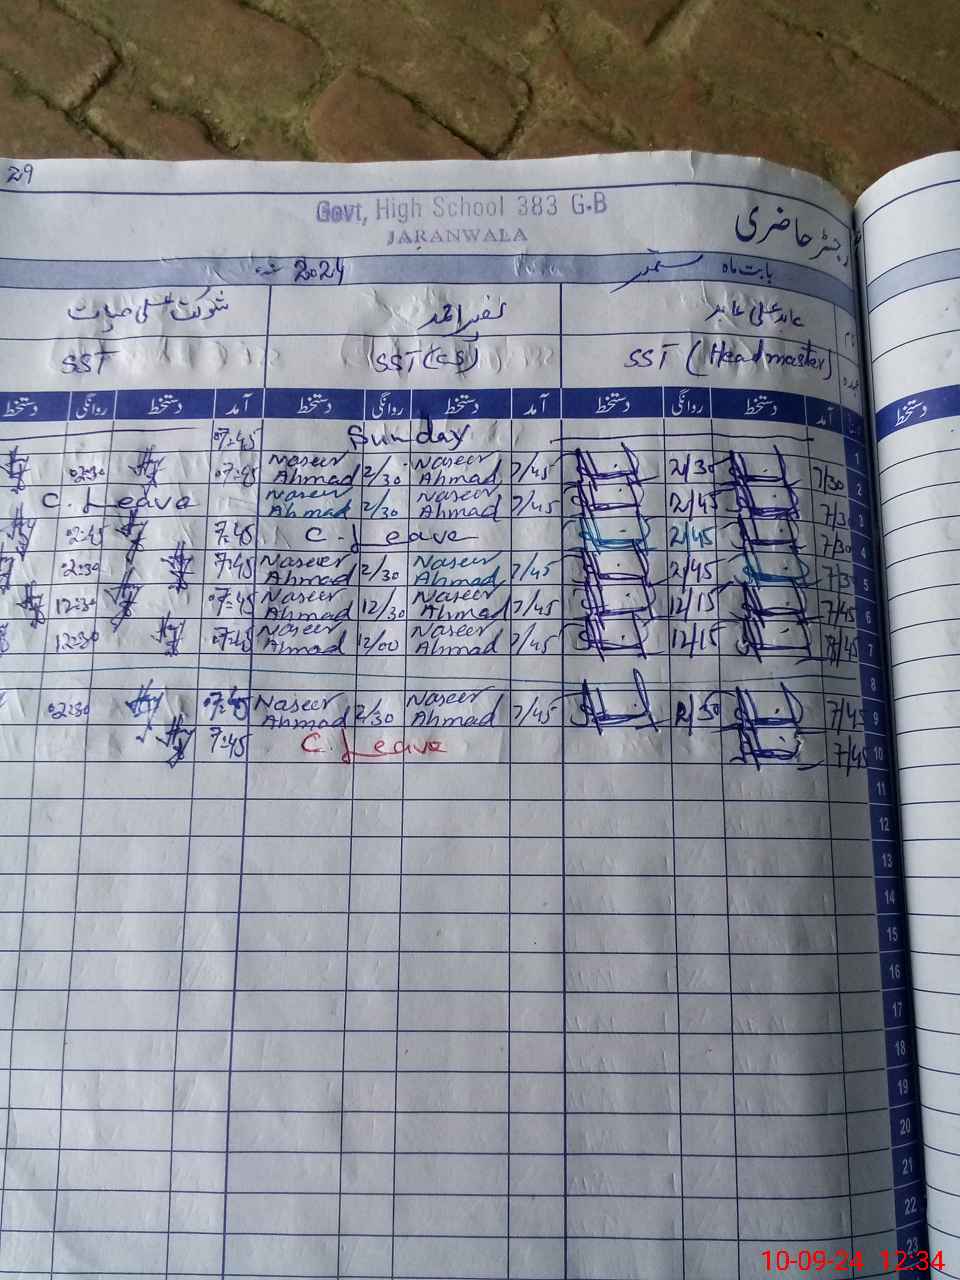 29
Govt, High School 383 G.B
JARANWALA
رجسٹر حاضری
بابت ماہ ستمبر 2024
عابد علی عابد نصیر احمد شوکت علی حیات
SST (Headmaster) SST (CS) SST
آمد دستخط روانگی دستخط آمد دستخط روانگی دستخط آمد دستخط روانگی دستخط
دستخط
1 Sunday 07:45
2 7/30 2/30 7/45 Naseer Ahmad 2/30 Naseer Ahmad 07:45 02:30
3 7/30 2/45 7/45 Naseer Ahmad 2/30 Naseer Ahmad C. Leave
4 7/30 2/45 C. Leave 7:45 02:45
5 7/3 2/45 7/45 Naseer Ahmad 2/30 Naseer Ahmad 7:45 02:30
6 7/45 12/15 7/45 Naseer Ahmad 12/30 Naseer Ahmad 07:45 12:30
7 7/45 12/15 7/45 Naseer Ahmad 12/00 Naseer Ahmad 07:45 12:30
8
9 7/45 2/30 7/45 Naseer Ahmad 2/30 Naseer Ahmad 07:45 02:30
10 7/45 C. Leave 7:45
11
12
13
14
15
16
17
18
19
20
21
22
23
10-09-24 12:34